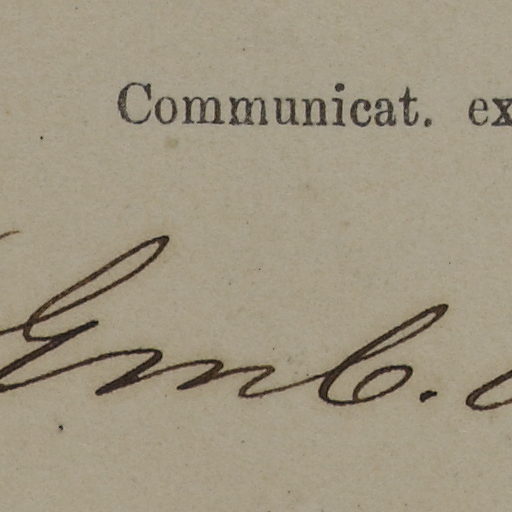 Communicat. ex
Gmb.